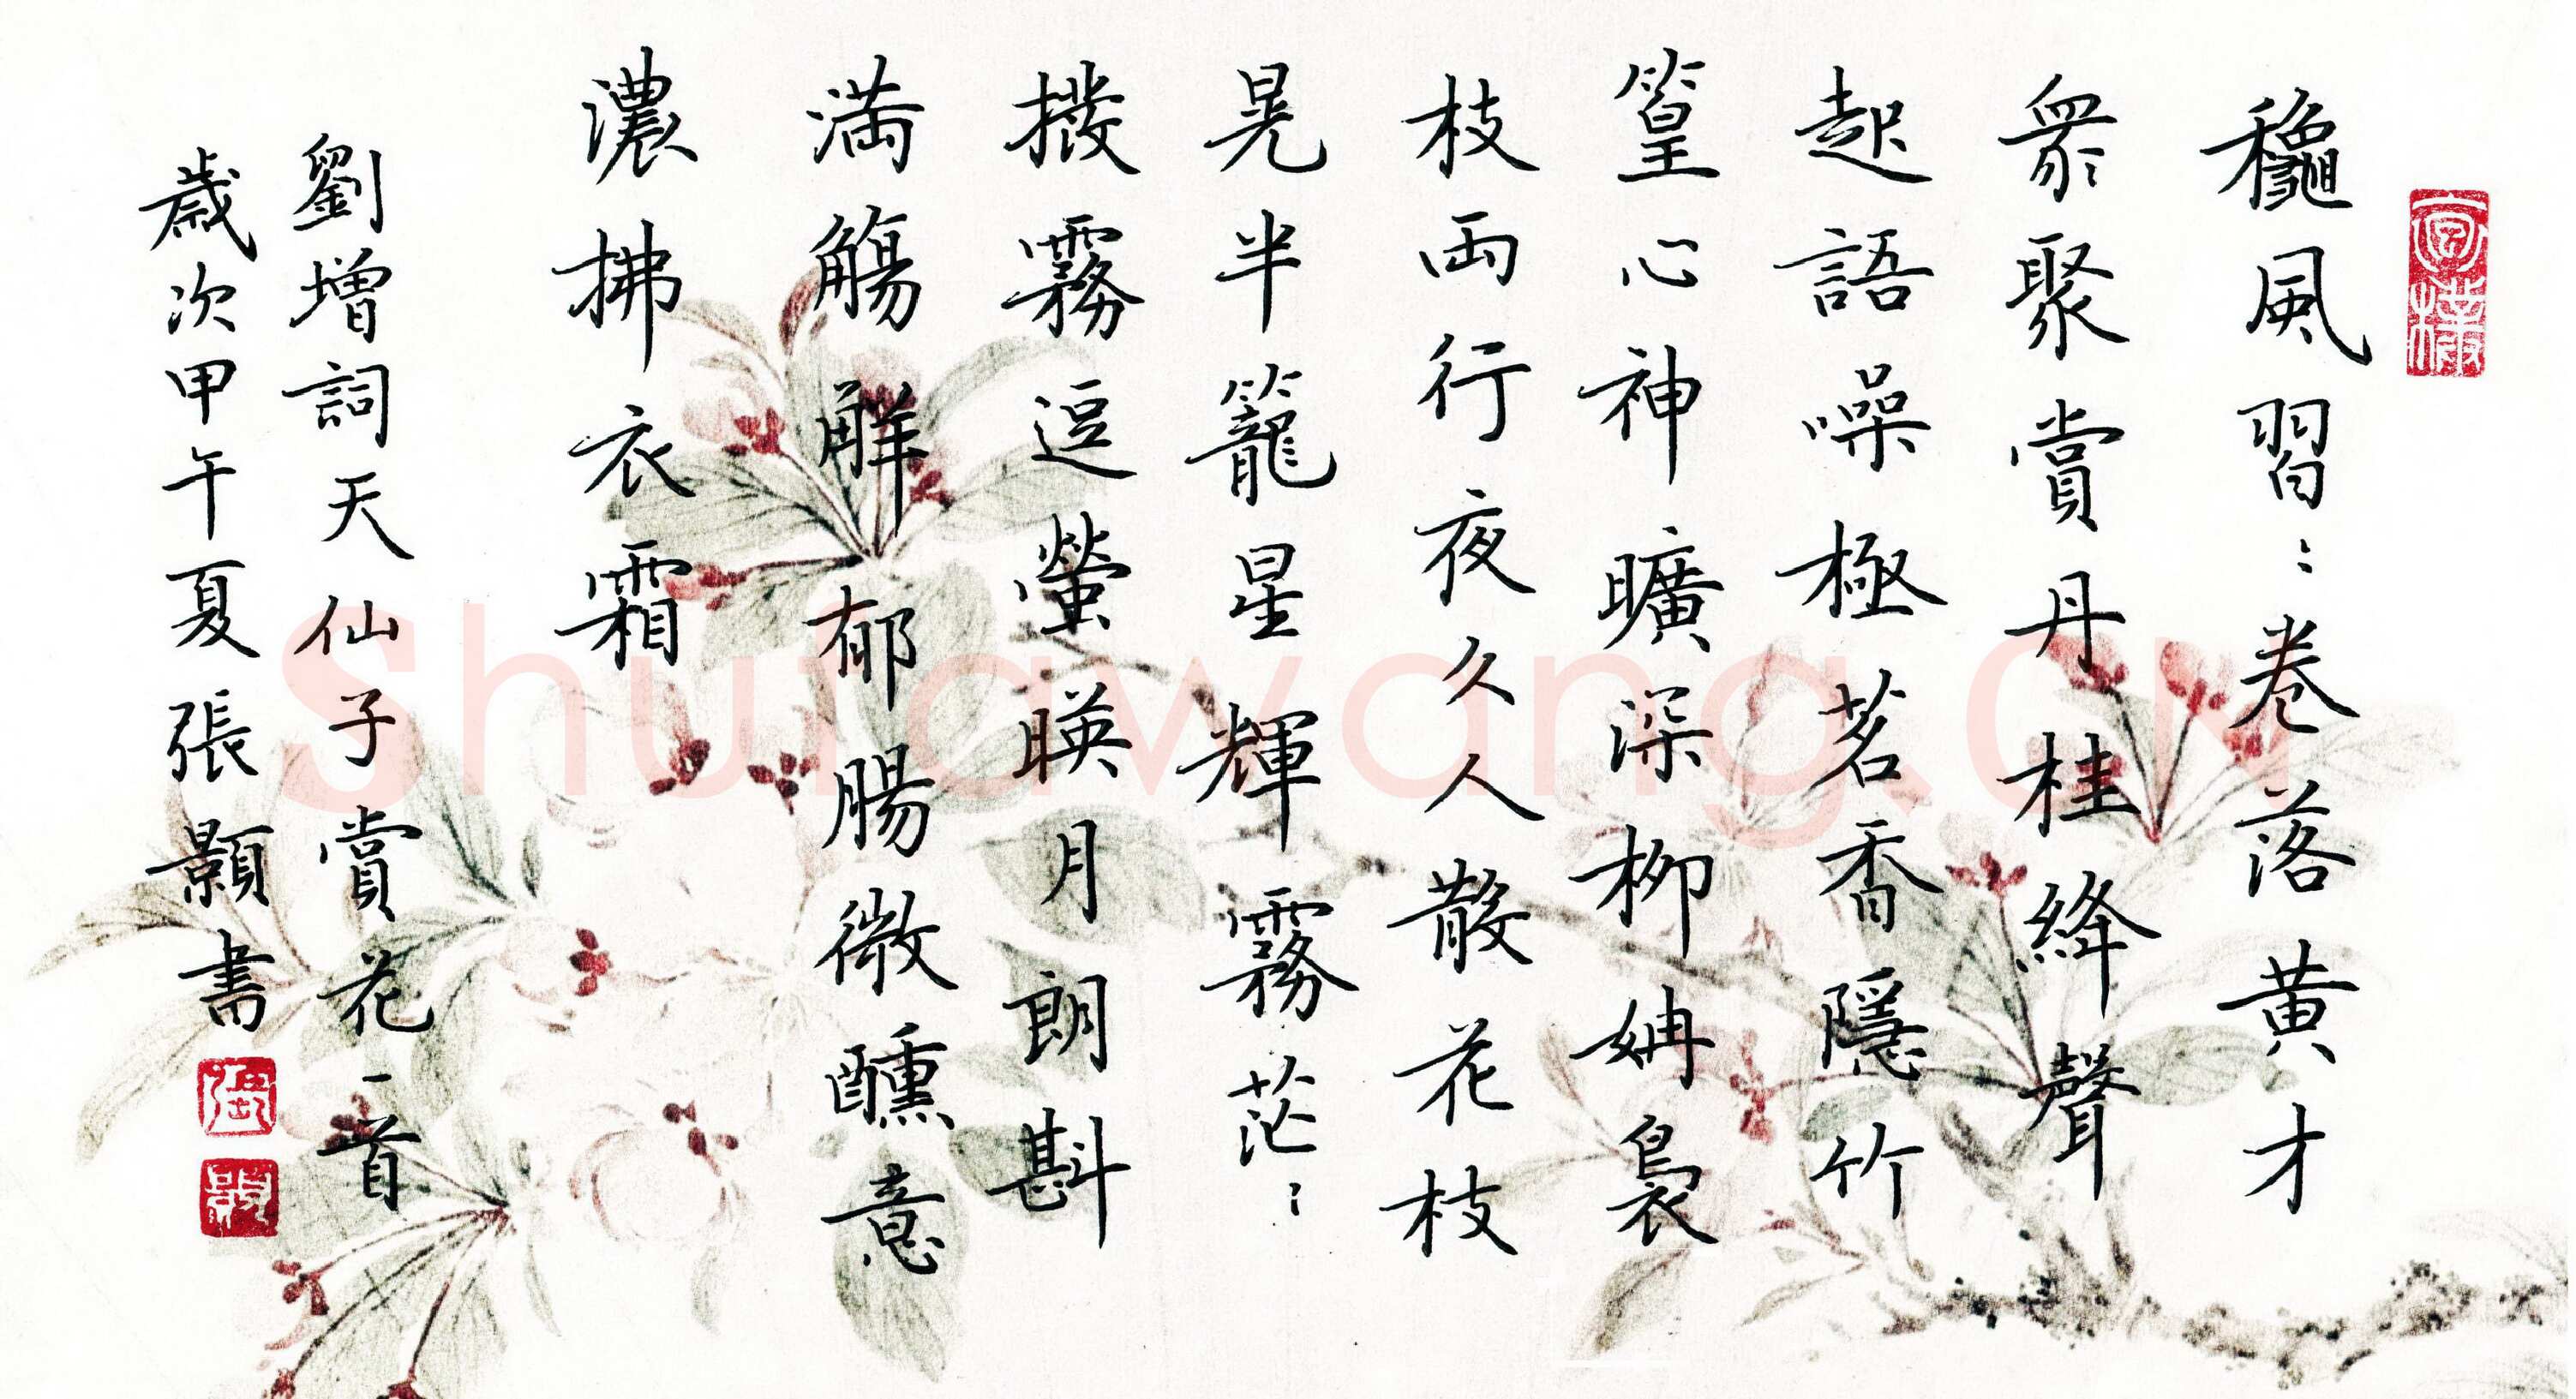 穐風習〻卷落黄才
眾聚賞丹桂絳聲
起語噪極茗香隱竹
篁心神曠深柳姌裊
枝両行夜久人散花枝
晃半籠星輝霧茫〻
撥霧逗螢暎月朗斟
満觴觧郁腸微醺意
濃拂衣霜
劉增詞天仙子賞花一首
歲次甲午夏張顥書
Shufawang.CN